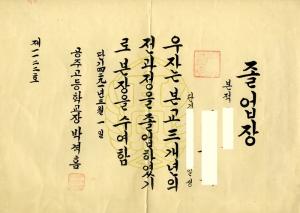 졸업장
본적
단기
일생
우자는 본교 三개년의
전과정을 졸업하였기
로 본장을 수여함
단기四二九一년三월一일
공주고등학교장 박적홈
제一一二호